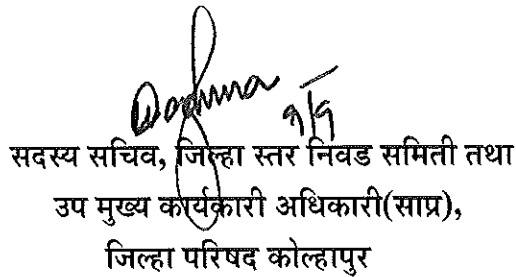 ९/९
सदस्य सचिव, जिल्हा स्तर निवड समिती तथा
उप मुख्य कार्यकारी अधिकारी(साप्र),
जिल्हा परिषद कोल्हापुर